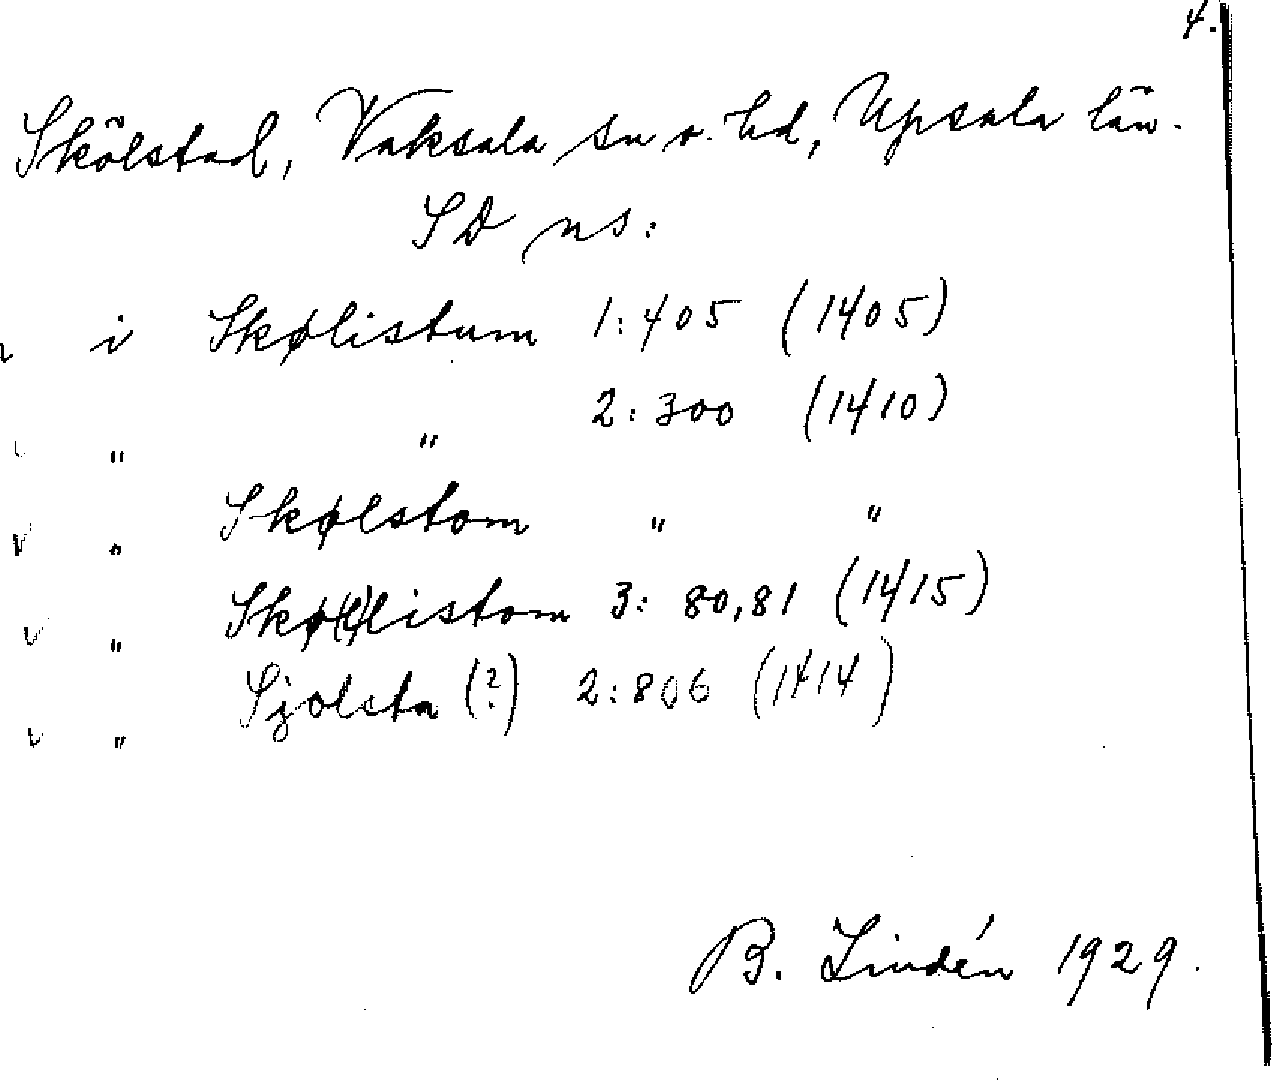 4.
Skölstad, Vaksala sn o. hd, Upsala län.
SD ns:
i Skølistum 1:405 (1405)
" " 2:300 (1410)
v " Skølstom " "
v " Skø(l)listom 3: 80,81 (1415)
v " Sjolsta (?) 2:806 (1414)
B. Lindén 1929.